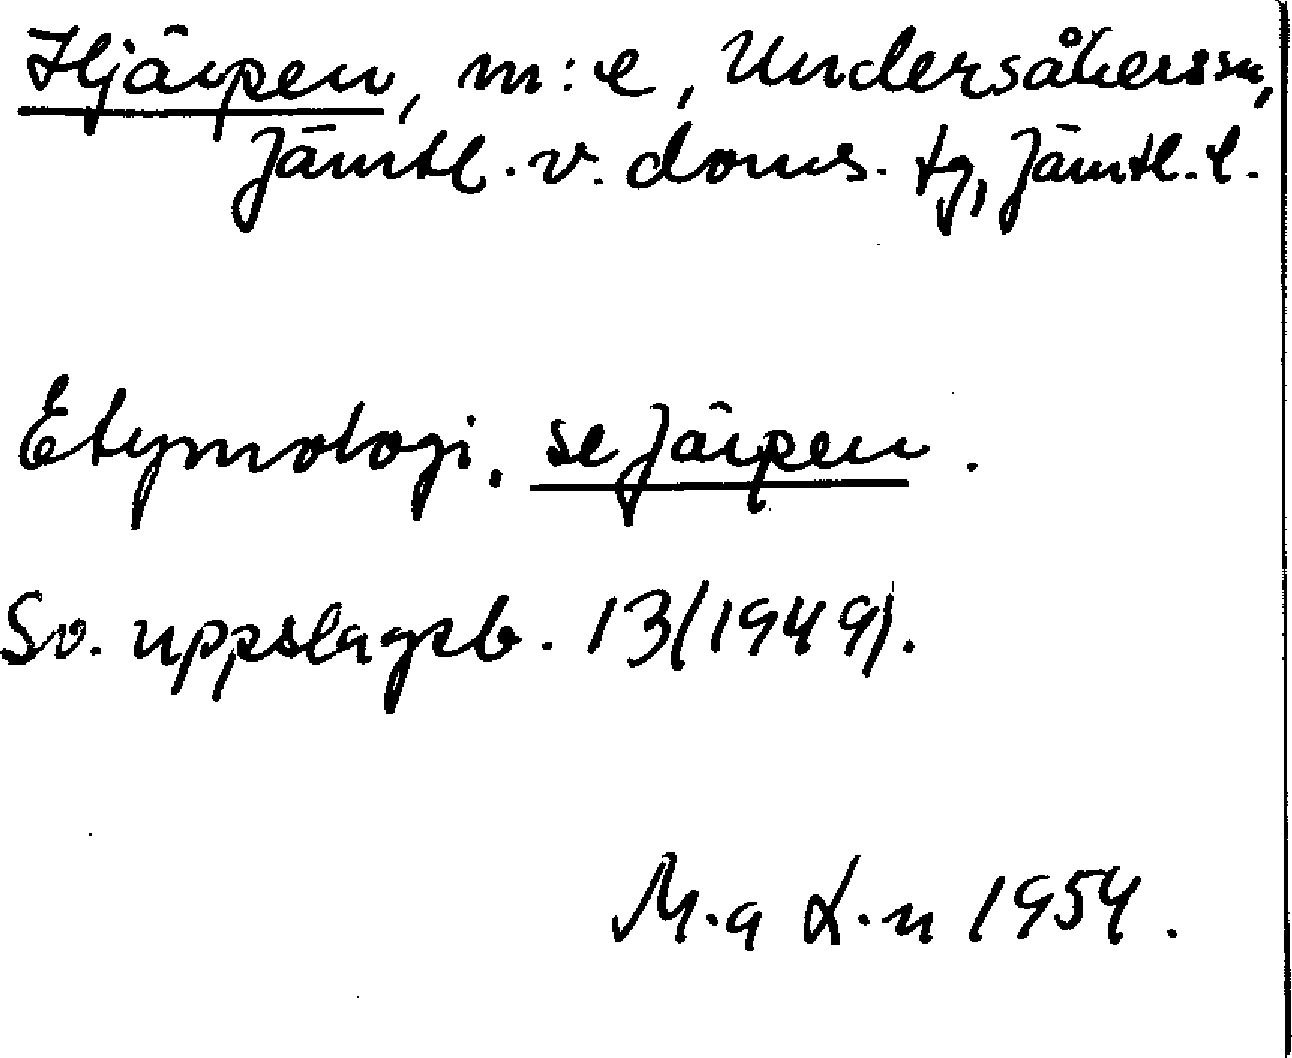 Hjärpen, m:e, Undersåkers sn,
Jämtl. v. doms. tg, Jämtl. l.
Etymologi, se Järpen.
Sv. uppslagsb. 13(1949).
M.a L.n 1954.